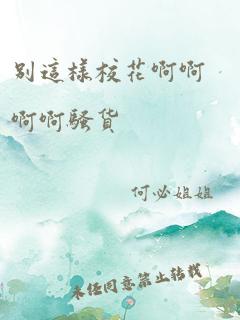 别這樣校花啊啊
啊啊騷货
何必姐姐
未经同意禁止转载